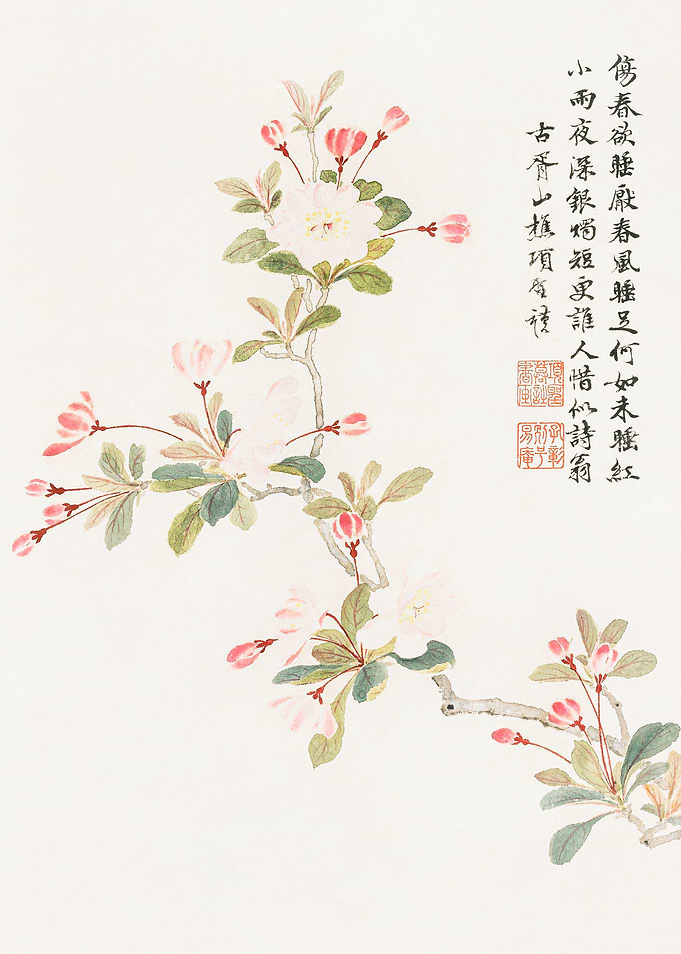 傷春欲睡厭春風睡足何如未睡紅
小雨夜深銀燭短更誰人惜似詩翁
古胥山樵項聖謨
項聖謨詩書畫
孔彰別号易庵